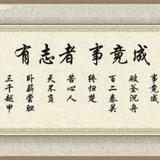 有志者 事竟成
事竟成
破釜沉舟
百二秦关
终归楚
苦心人
天不负
卧薪尝胆
三千越甲